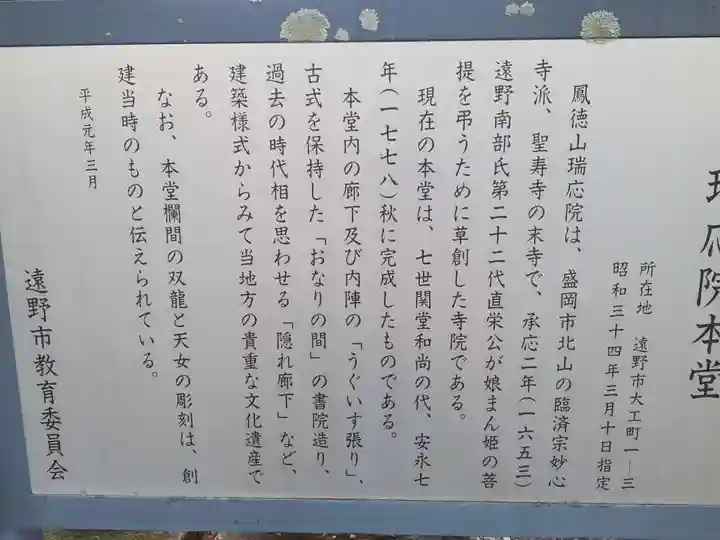 瑞応院本堂
所在地　遠野市大工町一―三
昭和三十四年三月十日指定
鳳徳山瑞応院は、盛岡市北山の臨済宗妙心
寺派、聖寿寺の末寺で、承応二年(一六五三)
遠野南部氏第二十二代直栄公が娘まん姫の菩
提を弔うために草創した寺院である。
現在の本堂は、七世関堂和尚の代、安永七
年(一七七八)秋に完成したものである。
本堂内の廊下及び内陣の「うぐいす張り」、
古式を保持した「おなりの間」の書院造り、
過去の時代相を思わせる「隠れ廊下」など、
建築様式からみて当地方の貴重な文化遺産で
ある。
なお、本堂欄間の双龍と天女の彫刻は、創
建当時のものと伝えられている。
平成元年三月
遠野市教育委員会